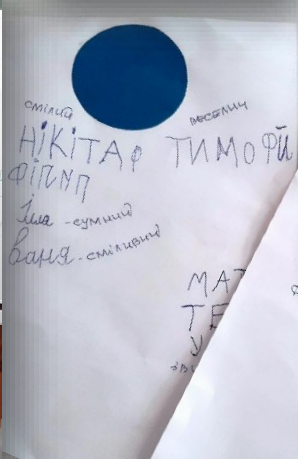 смілий веселий
НІКІТАР ТИМОФІЙ
ФІЛИП
Ілла - сумний
Ваня - сміливий
МАТ
ТЕ
У